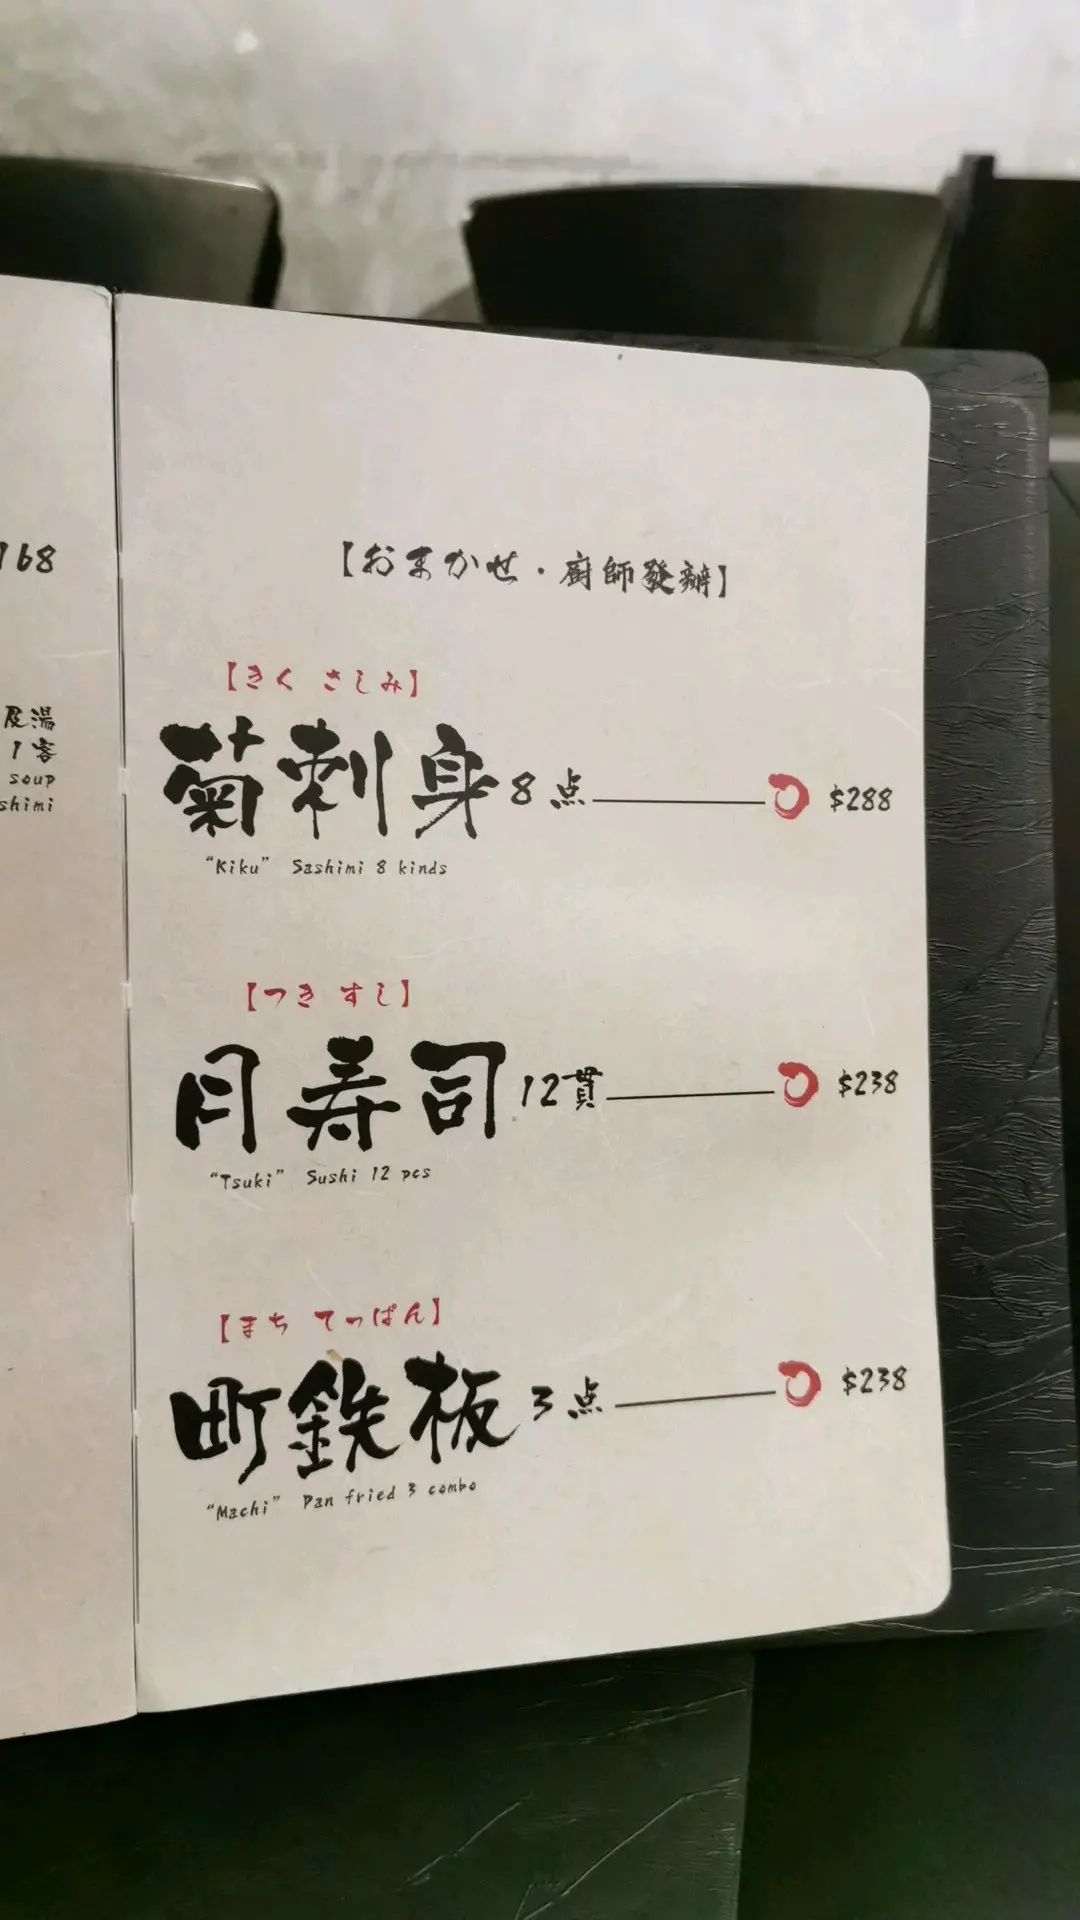 168
及湯
1客
soup
shimi
【おまかせ・廚師發辦】
【きく さしみ】
菊刺身 8点 $288
"Kiku" Sashimi 8 kinds
【つき すし】
月寿司 12貫 $238
"Tsuki" Sushi 12 pcs
【まち てっぱん】
町鉄板 3点 $238
"Machi" Pan fried 3 combo